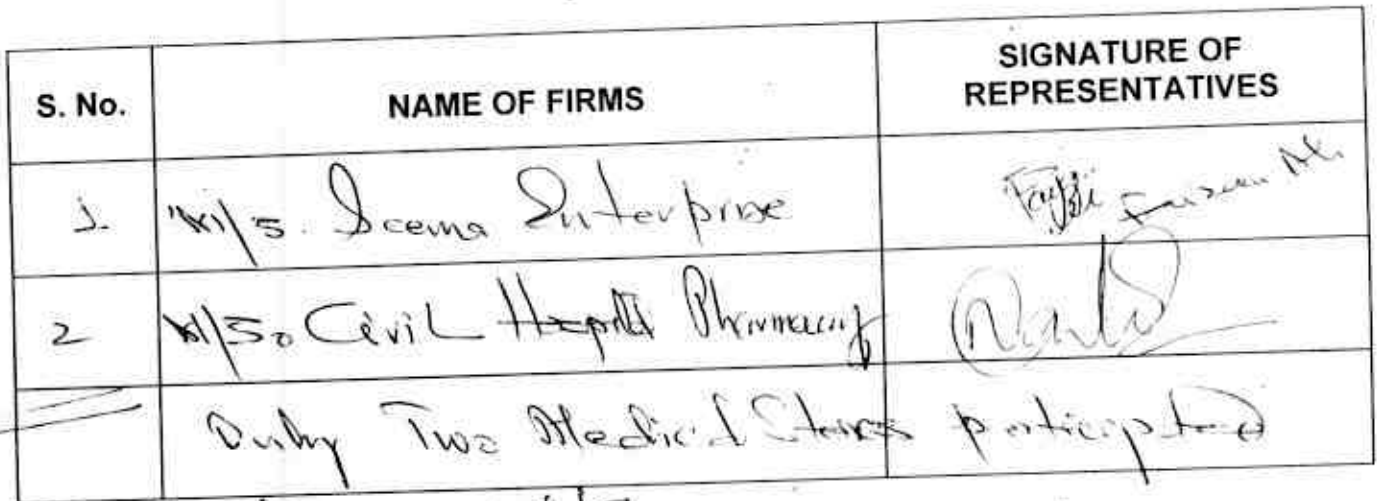 S. No. NAME OF FIRMS SIGNATURE OF REPRESENTATIVES
1. M/S. Seema Enterprise
2 M/S. Civil Hospital Pharmacy
Only Two Medical Stores participated